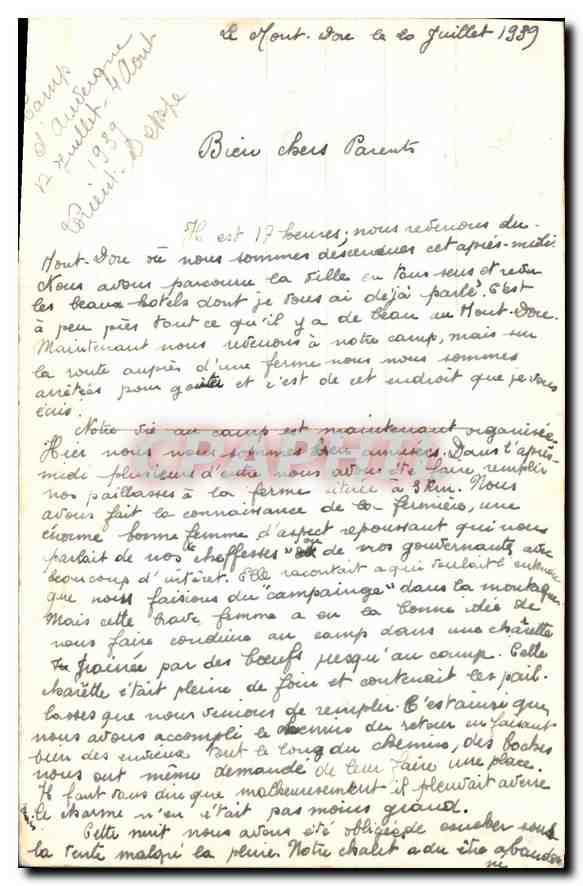 Le Mont-Dore le 20 Juillet 1939
Camp
d'Auvergne
12 Juillet - 4 Août
1939
Bien chers Parents
Il est 17 heures; nous revenons du
Mont-Dore où nous sommes descendues cet après-midi.
Nous avons parcouru la ville en tous sens et revu
les beaux hotels dont je vous ai déjà parlé. C'est
à peu près tout ce qu'il y a de beau au Mont-Dore.
Maintenant nous revenons à notre camp, mais sur
la route auprès d'une ferme nous nous sommes
arrêtées pour goûter et c'est de cet endroit que je vous
écris.
Notre vie au camp est maintenant organisée.
Hier nous nous sommes bien amusées. Dans l'après-
midi plusieurs d'entre nous avons été faire remplir
nos paillasses à la ferme située à 3 km. Nous
avons fait la connaissance de la fermière, une
énorme bonne femme d'aspect repoussant qui nous
parlait de nos "cheffesses" ou de nos gouvernantes avec
beaucoup d'intérêt. Elle racontait à qui voulait l'entendre
que nous faisions du "campainge" dans la montagne.
Mais cette brave femme a eu la bonne idée de
nous faire conduire au camp dans une charette
traînée par des bœufs jusqu'au camp. Cette
charette était pleine de foin et contenait les pail-
lasses que nous venions de remplir. C'est ainsi que
nous avons accompli le chemin du retour en faisant
bien des envieux tout le long du chemin, des boches
nous ont même demandé de leur faire une place.
Il faut vous dire que malheureusement il pleuvait averse
le charme n'en était pas moins grand.
Cette nuit nous avons été obligées de coucher sous
la tente malgré la pluie. Notre chalet a du être abandon
né